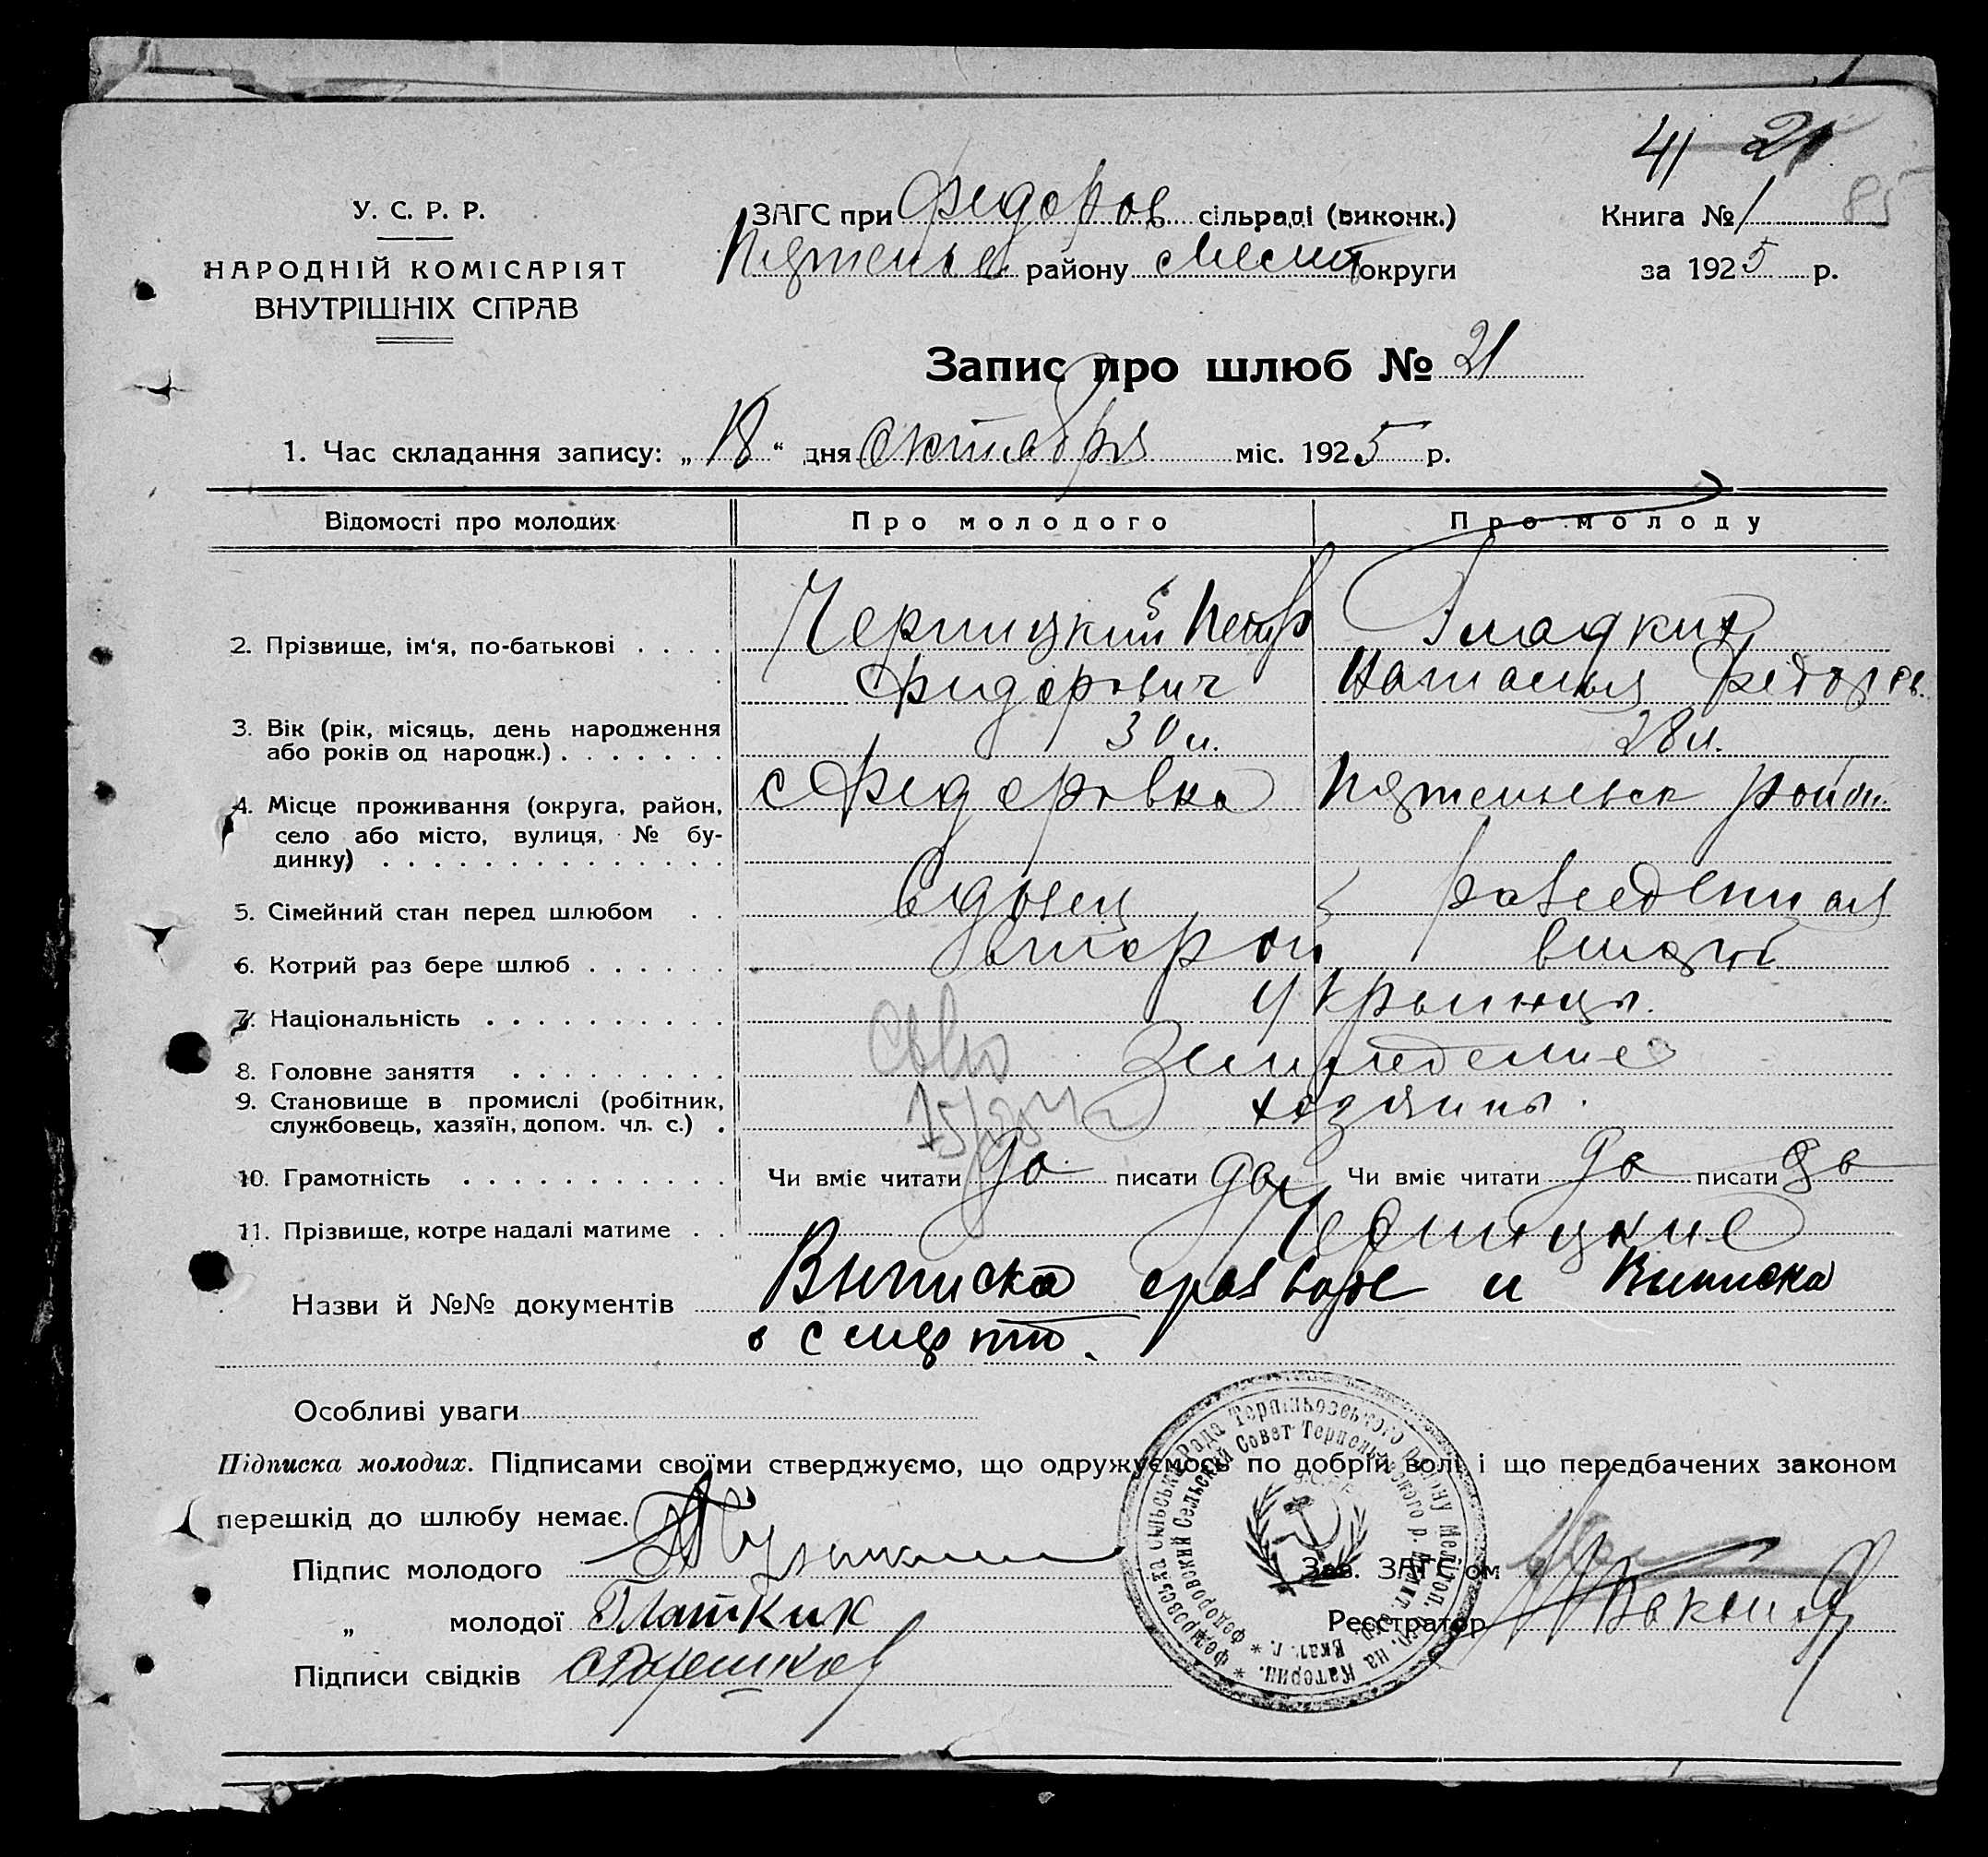 41 21
85
У. С. Р. Р.
НАРОДНІЙ КОМІСАРІЯТ
ВНУТРІШНІХ СПРАВ
ЗАГС при Федоров сільраді (виконк.)
району Мелит округи
Книга № 1
за 1925 р.
Запис про шлюб № 21
1. Час складання запису: „ 18 “ дня Октября міс. 1925 р.
Відомості про молодих Про молодого Про молоду
2. Прізвище, ім'я, по-батькові Черницкий Петр Гладких
Федорович Наталья Федоров.
3. Вік (рік, місяць, день народження
або років од народж.) 30 л. 28 л.
4. Місце проживання (округа, район, с Федоровка район.
село або місто, вулиця, № бу-
динку)
5. Сімейний стан перед шлюбом вдовец разведенная
6. Котрий раз бере шлюб второй
7. Національність Украинцы.
8. Головне заняття Земледелие
9. Становище в промислі (робітник,
службовець, хазяїн, допом. чл. с.) хозяины.
10. Грамотність Чи вміє читати да писати да Чи вміє читати да писати да
11. Прізвище, котре надалі матиме Черницкие
Назви й №№ документів Выписка о разводе и Выписка
о смерти.
Особливі уваги
Підписка молодих. Підписами своїми стверджуємо, що одружуємось по добрій волі і що передбачених законом
перешкід до шлюбу немає.
Підпис молодого
Зав. ЗАГС'ом
„ молодої Глатких
Реєстратор
Підписи свідків
Федоровська сільська Рада Терпіньковського району Мелітоп. окр. на Катерин.
Федоровский Сельский Совет Терпеньевского р.